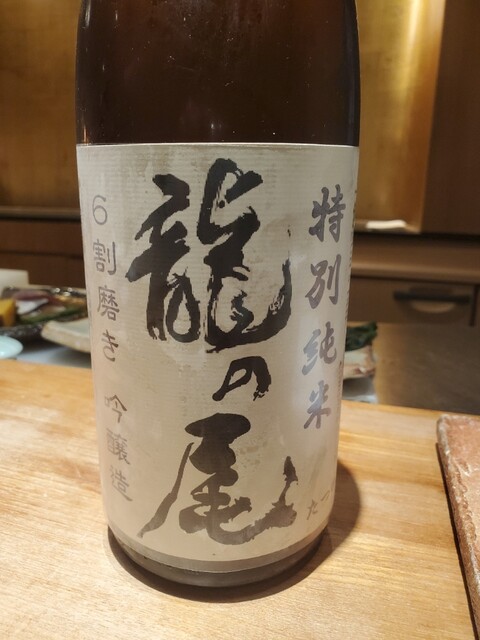 特別純米
龍の尾
6割磨き 吟醸造
たつ